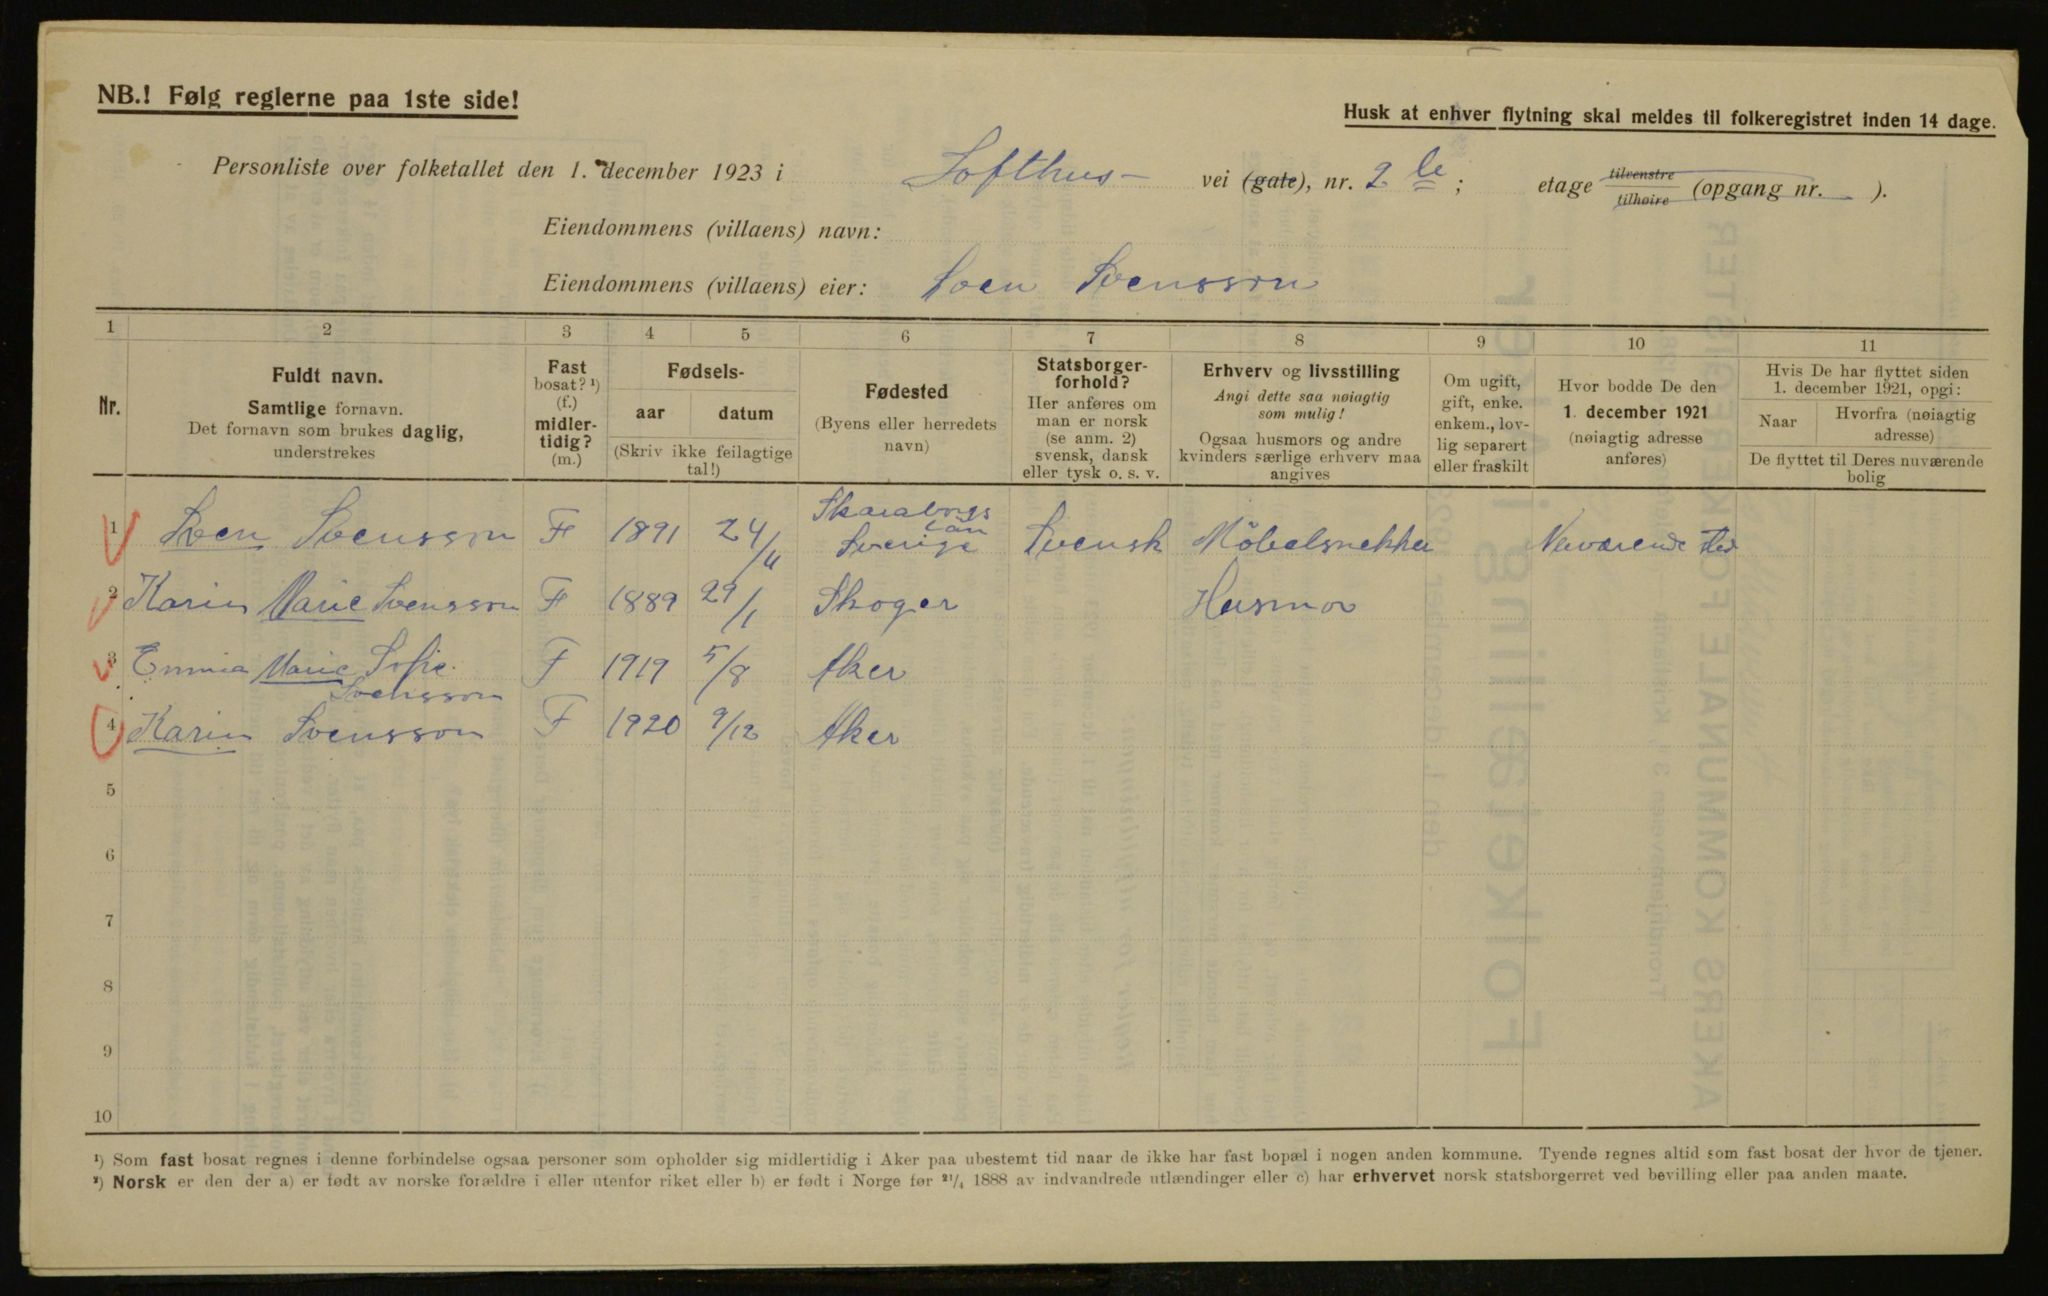 NB.! Følg reglerne paa 1ste side!
Husk at enhver flytning skal meldes til folkeregistret inden 14 dage.
Personliste over folketallet den 1. december 1923 i Lofthus- vei (gate), nr. 2 ; etage tilvenstre tilhøire (opgang nr. ).
Eiendommens (villaens) navn:
Eiendommens (villaens) eier: Sven Svensson
1 2 3 4 5 6 7 8 9 10 11
Nr.
Fuldt navn.
Samtlige fornavn.
Det fornavn som brukes daglig,
understrekes
Fast
bosat? ¹)
(f.)
midler-
tidig?
(m.)
Fødsels-
aar datum
(Skriv ikke feilagtige
tal!)
Fødested
(Byens eller herredets
navn)
Statsborger-
forhold?
Her anføres om
man er norsk
(se anm. 2)
svensk, dansk
eller tysk o. s. v.
Erhverv og livsstilling
Angi dette saa nøiagtig
som mulig!
Ogsaa husmors og andre
kvinders særlige erhverv maa
angives
Om ugift,
gift, enke.
enkem., lov-
lig separert
eller fraskilt
Hvor bodde De den
1. december 1921
(nøiagtig adresse
anføres)
Hvis De har flyttet siden
1. december 1921, opgi:
Naar Hvorfra (nøiagtig
adresse)
De flyttet til Deres nuværende
bolig
1 Sven Svensson F 1891 24/11 Skaraborgs län Sverige Svensk Möbelsnekker Nuværende sted
2 Karin Marie Svensson F 1889 29/1 Skoger Husmor
3 Emma Marie Sofie Svensson F 1919 5/8 Aker
4 Karin Svensson F 1920 9/12 Aker
5
6
7
8
9
10
¹) Som fast bosat regnes i denne forbindelse ogsaa personer som opholder sig midlertidig i Aker paa ubestemt tid naar de ikke har fast bopæl i nogen anden kommune. Tyende regnes altid som fast bosat der hvor de tjener.
²) Norsk er den der a) er født av norske forældre i eller utenfor riket eller b) er født i Norge før ²¹/₄ 1888 av indvandrede utlændinger eller c) har erhvervet norsk statsborgerret ved bevilling eller paa anden maate.